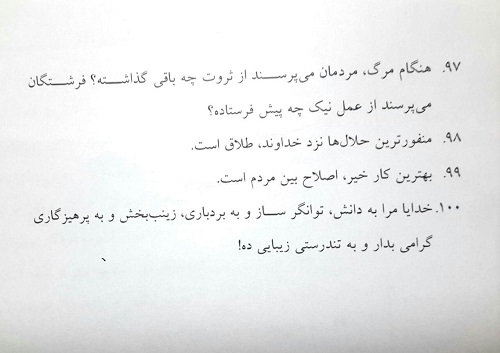 ۹۷. هنگام مرگ، مردمان می‌پرسند از ثروت چه باقی گذاشته؟ فرشتگان
می‌پرسند از عمل نیک چه پیش فرستاده؟
۹۸. منفورترین حلال‌ها نزد خداوند، طلاق است.
۹۹. بهترین کار خیر، اصلاح بین مردم است.
۱۰۰. خدایا مرا به دانش، توانگر ساز و به بردباری، زینت‌بخش و به پرهیزگاری
گرامی بدار و به تندرستی زیبایی ده!